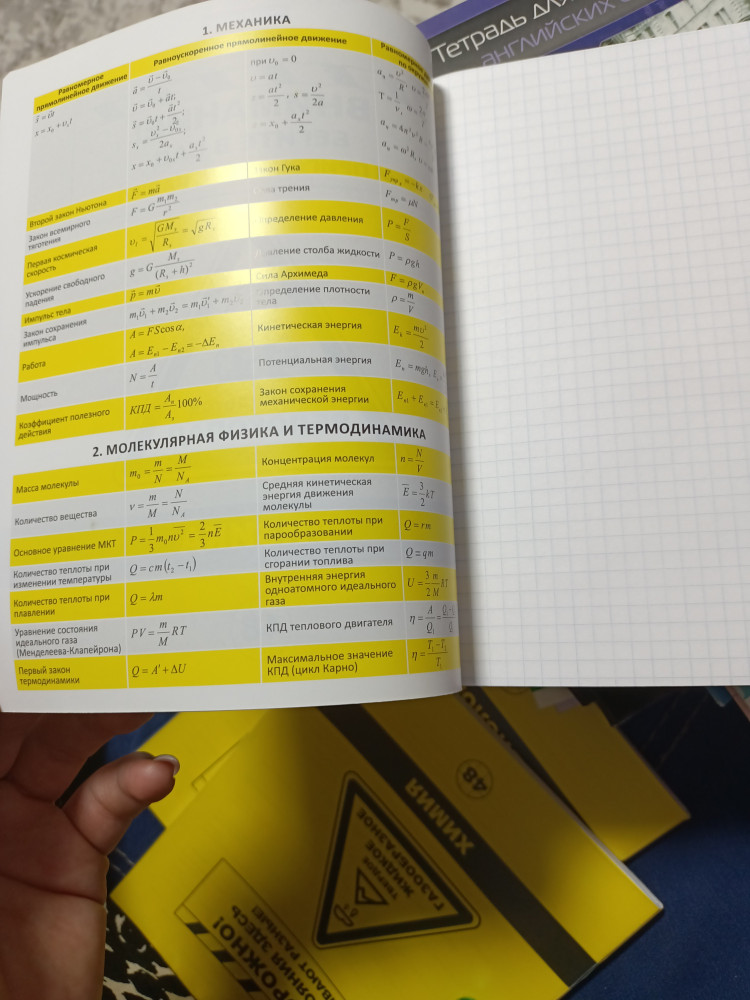 Тетрадь для
английских с
1. МЕХАНИКА
Равномерное прямолинейное движение
Равноускоренное прямолинейное движение
Равномерное
по
s⃗ = υ⃗t
x = x₀ + υₓt
a⃗ = (υ⃗ − υ⃗₀)/t
υ⃗ = υ⃗₀ + a⃗t,
s⃗ = υ⃗₀t + a⃗t²/2;
sₓ = (υₓ² − υ₀ₓ²)/2aₓ;
x = x₀ + υ₀ₓt + aₓt²/2
при υ₀ = 0
υ = at
s = at²/2, s = υ²/2a
x = x₀ + aₓt²/2
Второй закон Ньютона F⃗ = ma⃗
Закон Гука
Закон всемирного тяготения F = G m₁m₂/r²
Сила трения Fтр = μN
Первая космическая скорость
Определение давления P = F/S
Ускорение свободного падения
Давление столба жидкости P = ρgh
Импульс тела p⃗ = mυ⃗
Сила Архимеда
Закон сохранения импульса
Определение плотности тела ρ = m/V
Работа A = FScosα,
A = Eп1 − Eп2 = −ΔEп
Кинетическая энергия Eк = mυ²/2
Мощность N = A/t
Потенциальная энергия Eп = mgh,
Коэффициент полезного действия КПД = Aп/Aз 100%
Закон сохранения механической энергии
2. МОЛЕКУЛЯРНАЯ ФИЗИКА И ТЕРМОДИНАМИКА
Масса молекулы m₀ = m/N = M/N_A
Концентрация молекул n = N/V
Количество вещества ν = m/M = N/N_A
Средняя кинетическая энергия движения молекулы E̅ = 3/2 kT
Основное уравнение МКТ P = 1/3 m₀nυ̅² = 2/3 nE̅
Количество теплоты при парообразовании Q = rm
Количество теплоты при изменении температуры Q = cm(t₂ − t₁)
Количество теплоты при сгорании топлива Q = qm
Количество теплоты при плавлении Q = λm
Внутренняя энергия одноатомного идеального газа U = 3/2 m/M RT
Уравнение состояния идеального газа (Менделеева-Клапейрона) PV = m/M RT
КПД теплового двигателя
Первый закон термодинамики Q = A' + ΔU
Максимальное значение КПД (цикл Карно) η = (T₁ − T₂)/T₁
48
ХИМИЯ
ТВЕРДОЕ
ЖИДКОЕ
ГАЗООБРАЗНОЕ
РОЖНО!
ОЯНИЯ ЗДЕСЬ
ВАЮТ РАЗНЫЕ!